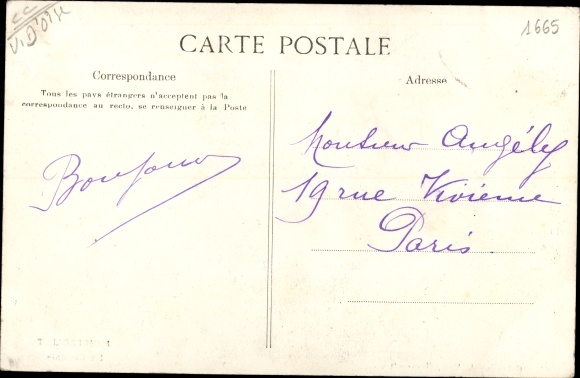 cc
V. D'OISE
1665
CARTE POSTALE
Correspondance
Tous les pays étrangers n'acceptent pas la
correspondance au recto, se renseigner à la Poste
Adresse
Bonjour
Monsieur Angély
19 rue Vivienne
Paris